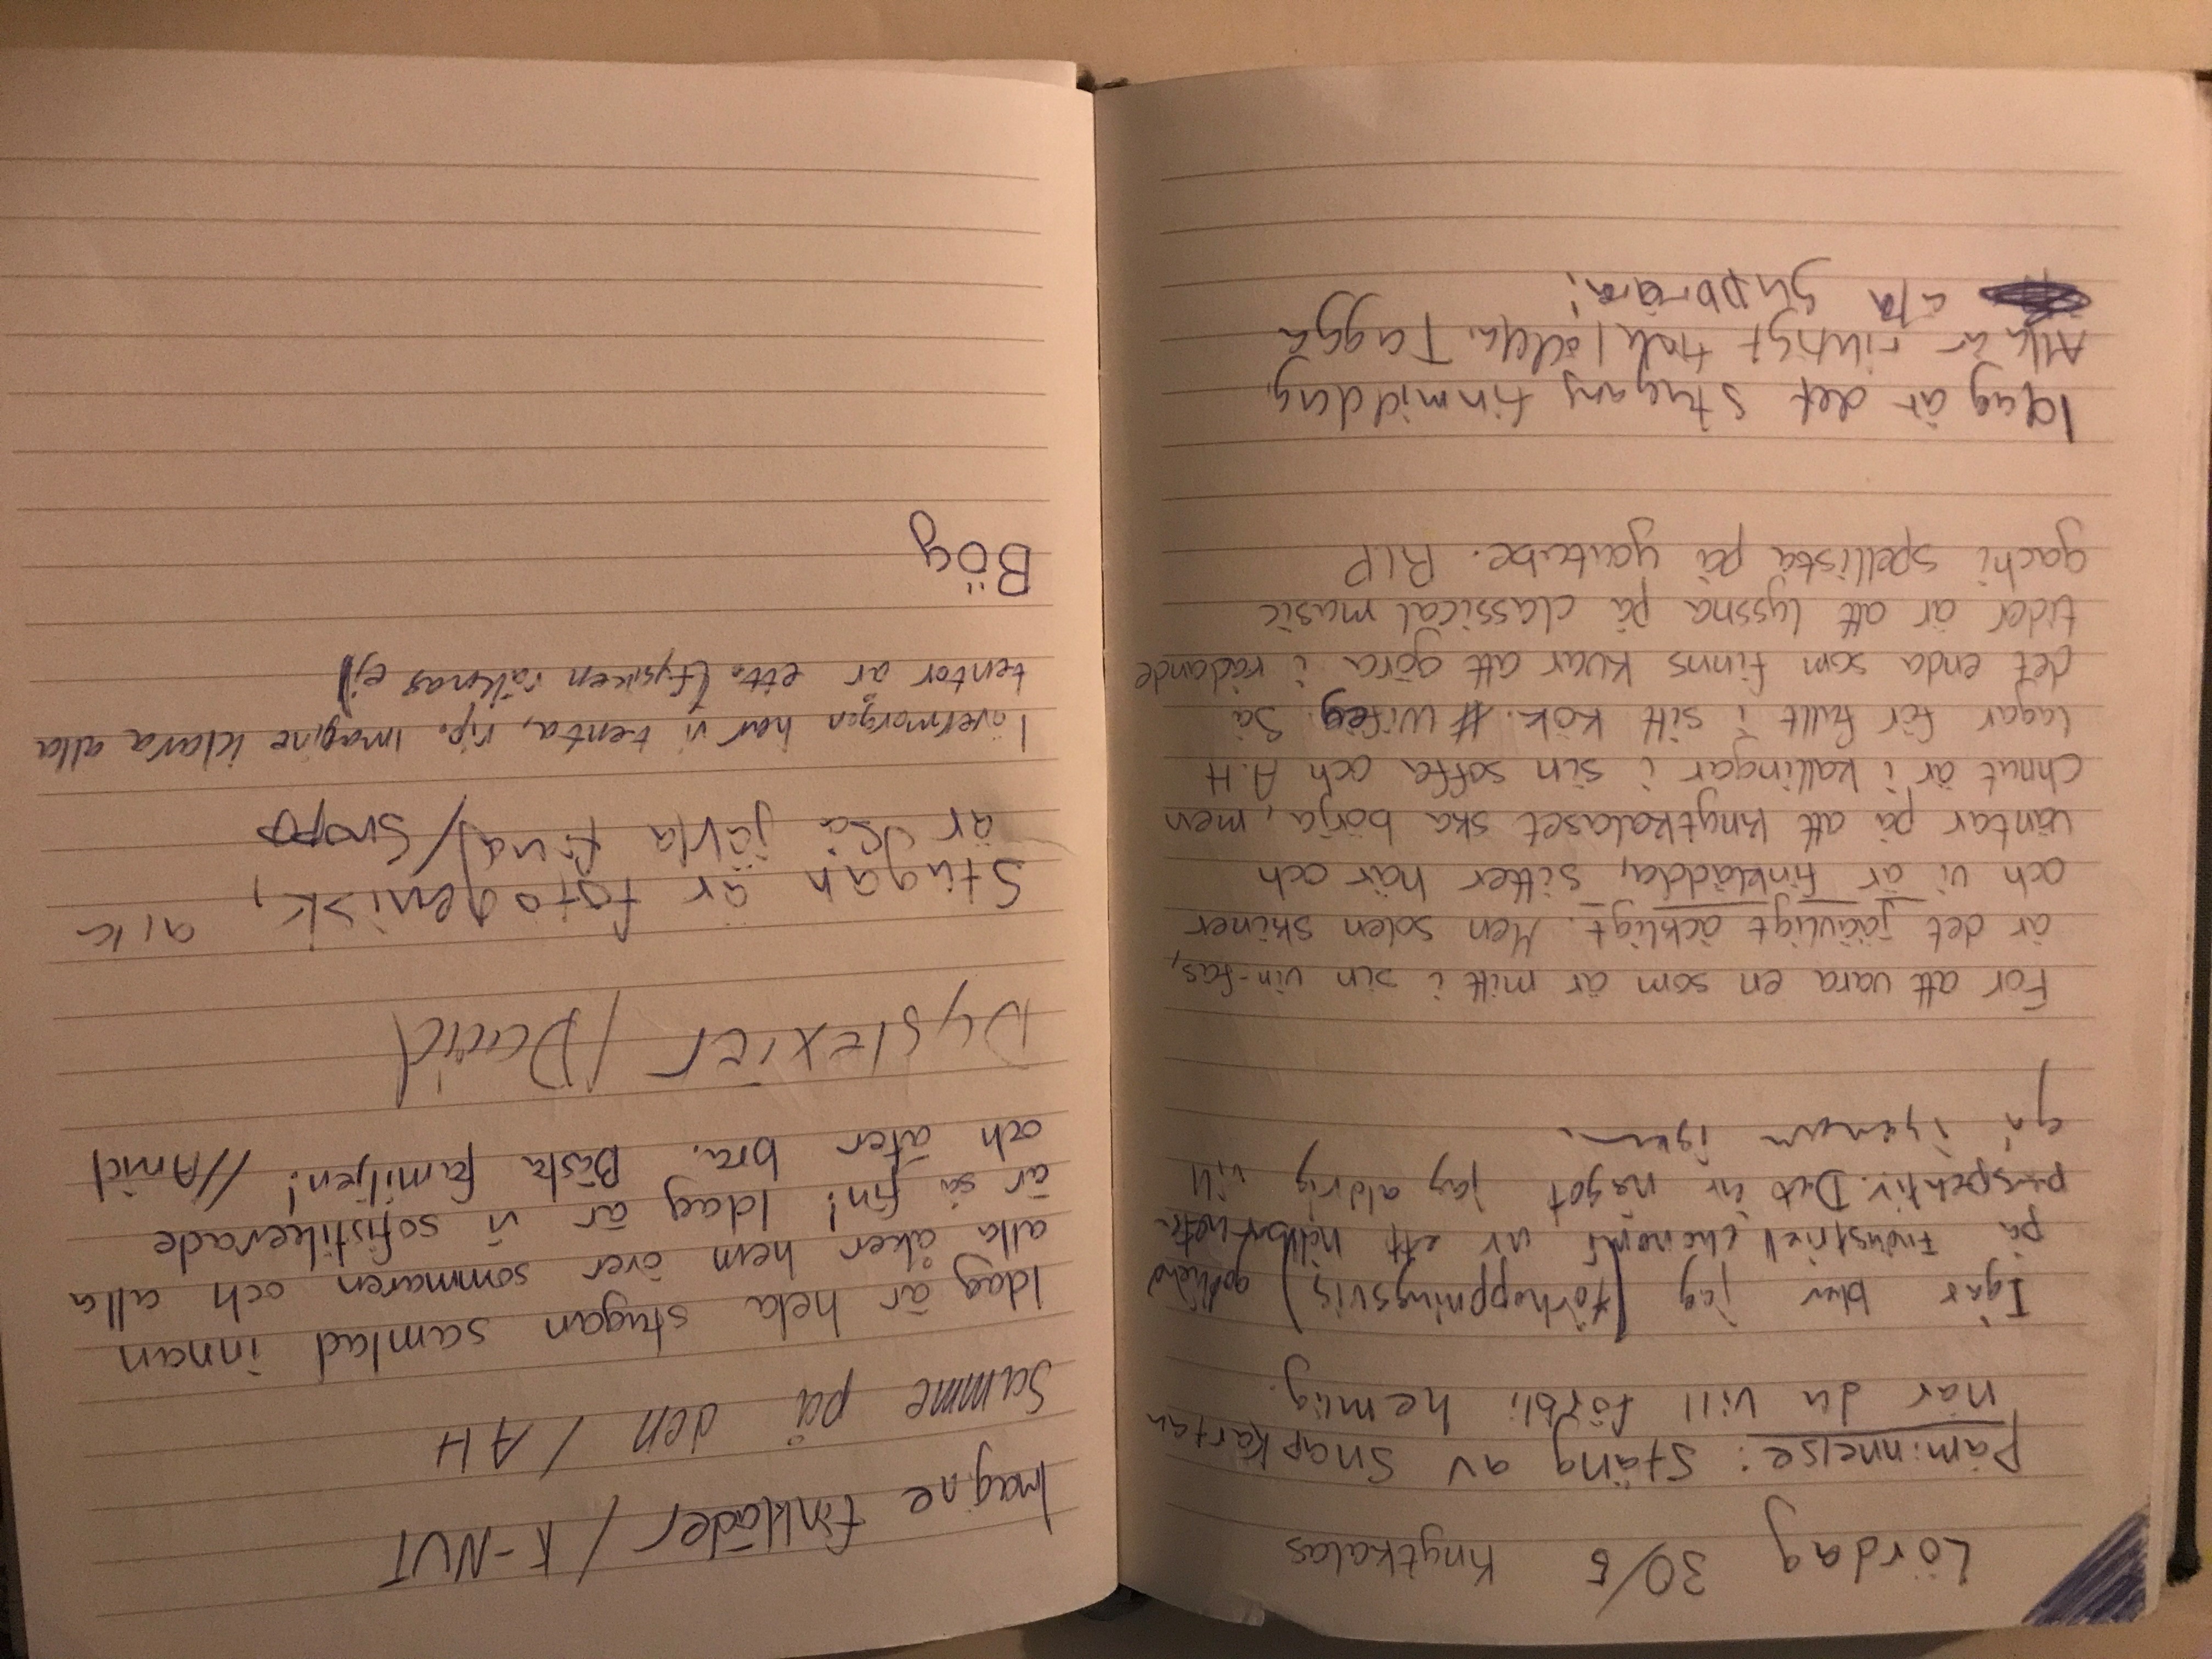 Lördag 30/5 Knytkalas
Påminnelse: Stäng av Snapkartan
när du vill förbli hemlig.
Igår blev jag (förhoppningsvis) godkänd
på Industriell ekonomi ur ett
perspektiv. Det är något jag aldrig vill
gå igenom igen.
För att vara en som är mitt i sin vin-fas,
är det jäävligt äckligt. Men solen skiner
och vi är finklädda, sitter här och
väntar på att knytkalaset ska börja, men
Chnut är i kallingar i sin soffa och A.H
lagar för fullt i sitt kök. # wifey. Så
det enda som finns kvar att göra i rådande
tider är att lyssna på classical music
gachi spellista på youtube. RIP
Idag är det stugans finmiddag.
Alla är riktigt finklädda. Tagga
äta supbra!
Imagine finkläder / K-NUT
Samme på den / AH
Idag är hela stugan samlad innan
alla åker hem över sommaren och alla
är så fin! Idag är vi sofistikerade
och äter bra. Bästa familjen! //Arvid
Dyslexier /David
Stugan är fotogenisk, alk
är så jävla find /Snopp
I övermorgen har vi tenta, rip. Imagine klara alla
tentor är etta (fysiken räknas ej)
Bög